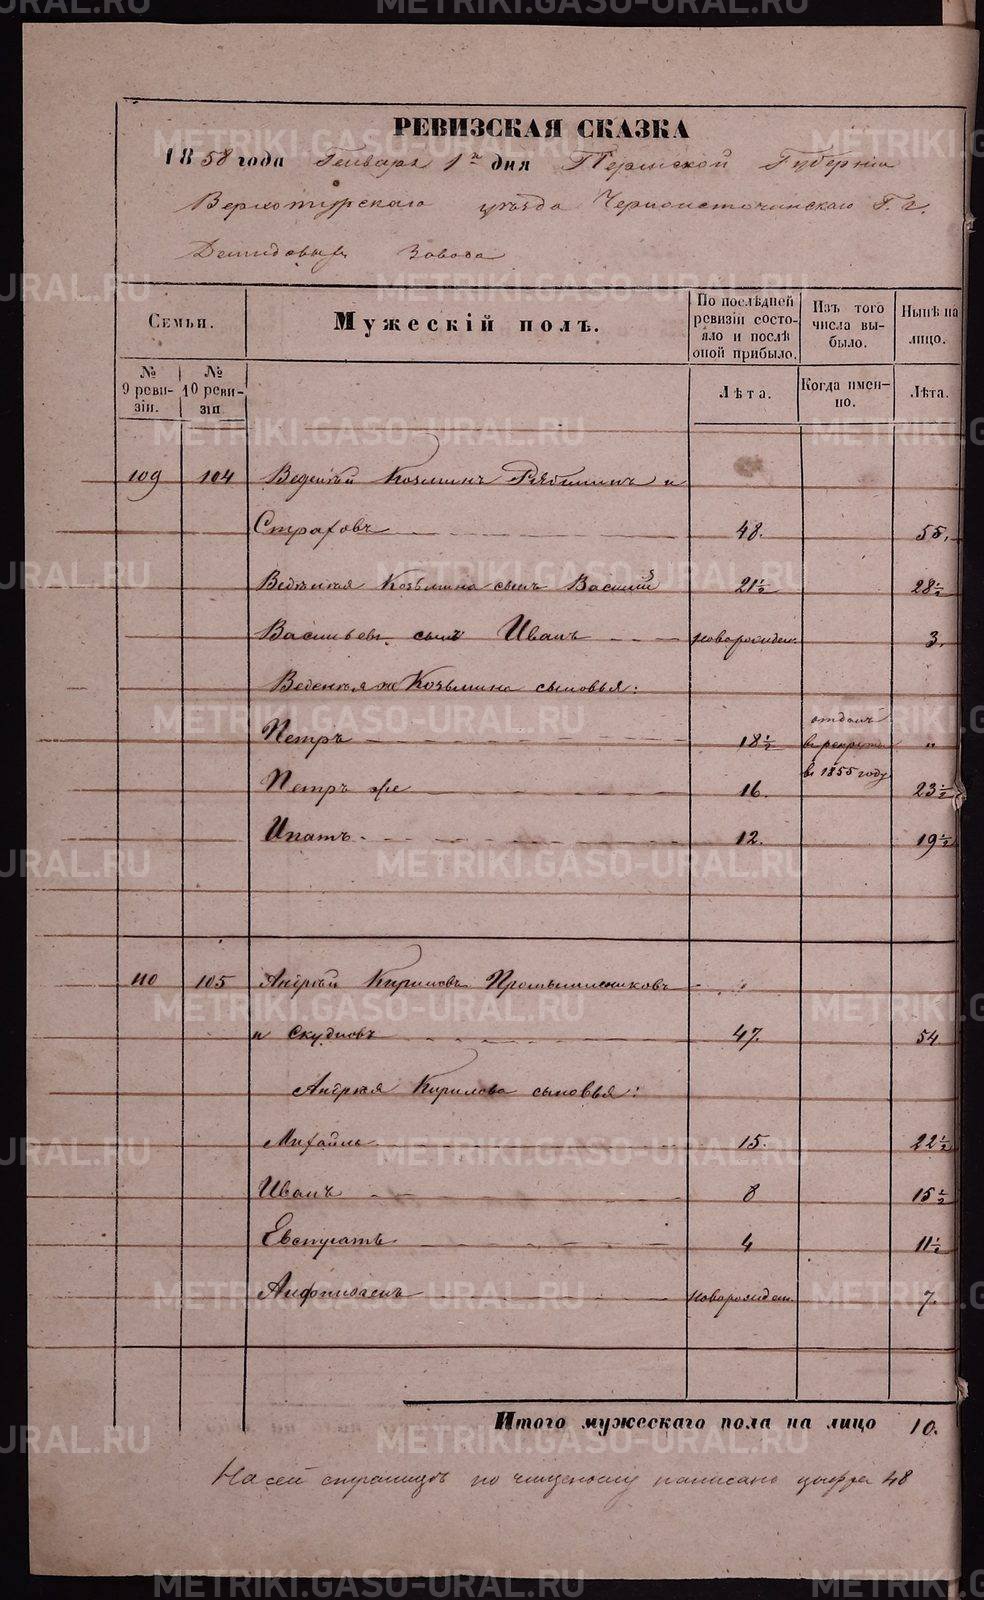 РЕВИЗСКАЯ СКАЗКА
1858 года Генваря 1го дня Пермской Губернiи
Верхотурскаго уѣзда Черноисточинскаго Г. г.
Демидовыхъ Завода
Семьи.
Мужескiй полъ.
По послѣдней ревизiи состояло и послѣ оной прибыло.
Изъ того числа выбыло.
Нынѣ на лицо.
№ 9 ревизiи.
№ 10 ревизiи
Лѣта.
Когда именно.
Лѣта.
109 104 Веденѣй Козминъ Рябининъ и
Страховъ 48. 55.
Веденѣя Козьмина сынъ Василiй 21½ 28½
Васильевъ сынъ Иванъ новорожден. 3.
Веденѣя же Козьмина сыновья:
Петръ 18½ отданъ в рекруты в 1855 году "
Петръ же 16. 23½
Ипатъ 12. 19½
110 105 Андрѣй Кириловъ Промышленниковъ
и Скудновъ 47. 54
Андрѣя Кирилова сыновья:
Михайло 15. 22½
Иванъ 8 15½
Евстратъ 4 11½
новорожден. 7.
Итого мужескаго пола на лицо 10.
На сей страницѣ по написано цыфра 48
METRIKI.GASO-URAL.RU